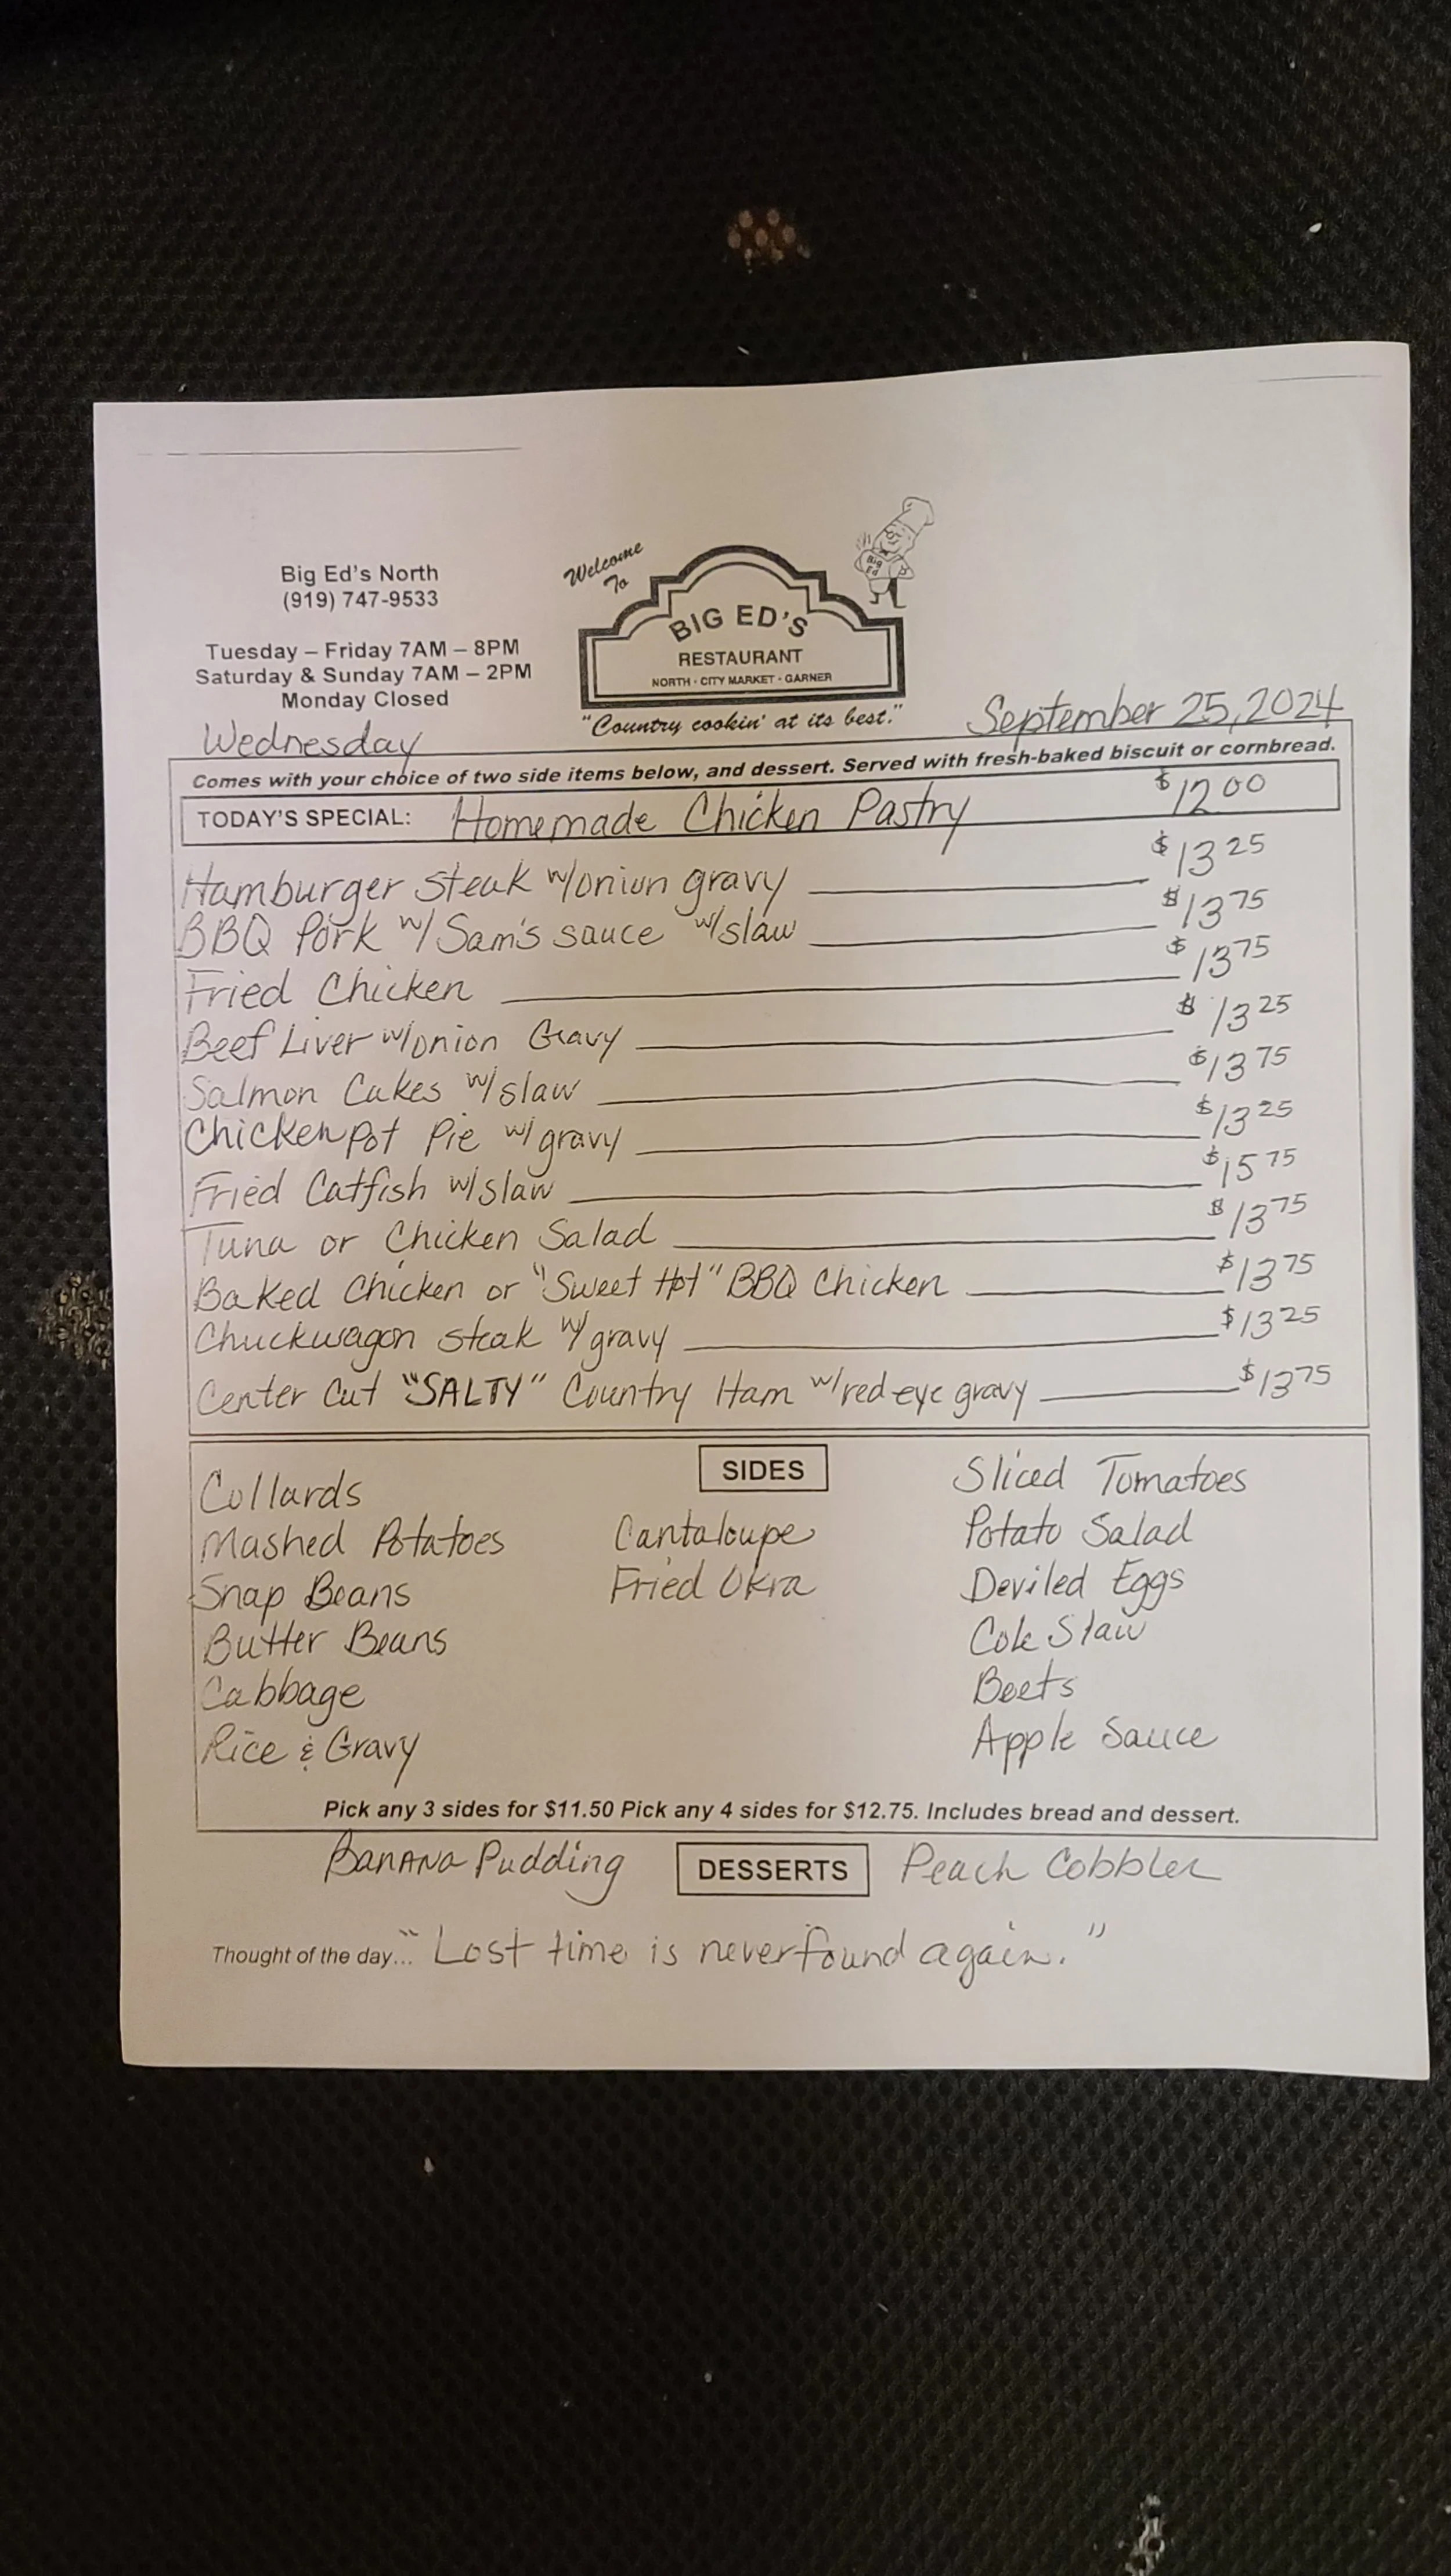 Big Ed's North
(919) 747-9533
Tuesday – Friday 7AM – 8PM
Saturday & Sunday 7AM – 2PM
Monday Closed
Welcome
To
Big
Ed
BIG ED'S
RESTAURANT
NORTH - CITY MARKET - GARNER
"Country cookin' at its best."
Wednesday
September 25, 2024
Comes with your choice of two side items below, and dessert. Served with fresh-baked biscuit or cornbread.
TODAY'S SPECIAL: Homemade Chicken Pastry $12 00
Hamburger steak w/onion gravy $13 25
BBQ Pork w/ Sam's sauce w/slaw $13 75
Fried Chicken $13 75
Beef Liver w/onion Gravy $13 25
Salmon Cakes w/slaw $13 75
Chicken Pot Pie w/ gravy $13 25
Fried Catfish w/slaw $15 75
Tuna or Chicken Salad $13 75
Baked Chicken or "Sweet Hot" BBQ Chicken $13 75
Chuckwagon steak w/ gravy $13 25
Center Cut "SALTY" Country Ham w/red eye gravy $13 75
SIDES
Collards
Mashed Potatoes
Snap Beans
Butter Beans
Cabbage
Rice & Gravy
Cantaloupe
Fried Okra
Sliced Tomatoes
Potato Salad
Deviled Eggs
Cole Slaw
Beets
Apple Sauce
Pick any 3 sides for $11.50 Pick any 4 sides for $12.75. Includes bread and dessert.
Banana Pudding DESSERTS Peach Cobbler
Thought of the day... "Lost time is never found again."